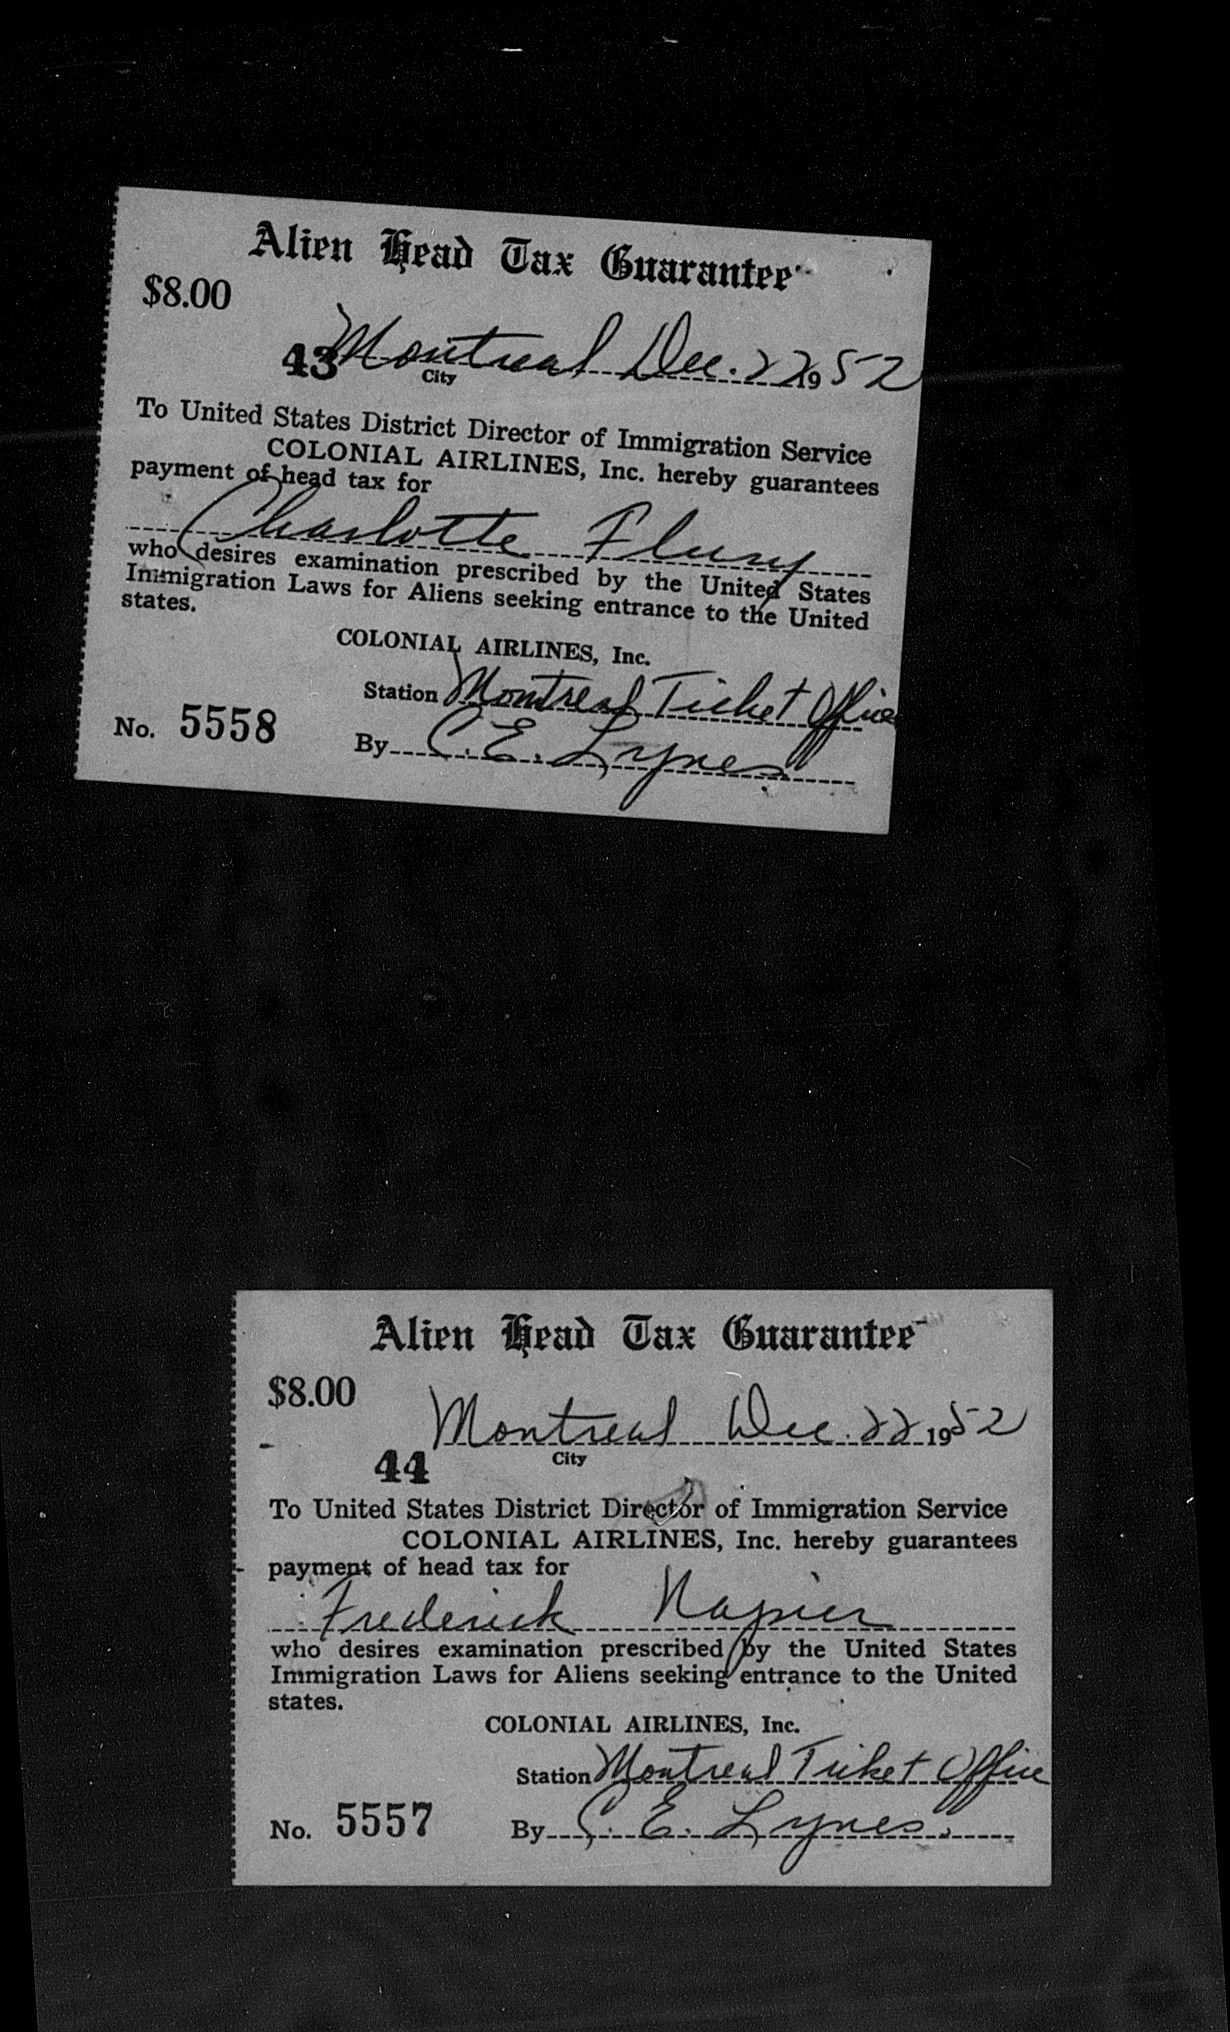 Alien Head Tax Guarantee
$8.00
43 Montreal Dec. 22 1952
City
To United States District Director of Immigration Service
COLONIAL AIRLINES, Inc. hereby guarantees
payment of head tax for
Charlotte Flury
who desires examination prescribed by the United States
Immigration Laws for Aliens seeking entrance to the United
states.
COLONIAL AIRLINES, Inc.
Station Montreal Ticket Office
No. 5558 By C. E. Lynes
Alien Head Tax Guarantee
$8.00
Montreal Dec. 22 1952
44 City
To United States District Director of Immigration Service
COLONIAL AIRLINES, Inc. hereby guarantees
payment of head tax for
Frederick Napier
who desires examination prescribed by the United States
Immigration Laws for Aliens seeking entrance to the United
states.
COLONIAL AIRLINES, Inc.
Station Montreal Ticket Office
No. 5557 By C. E. Lynes.